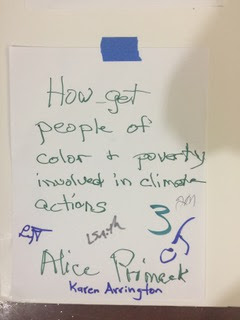 How get
people of
color & poverty
involved in climate
actions
3
AM
Alice Primack
Karen Arrington